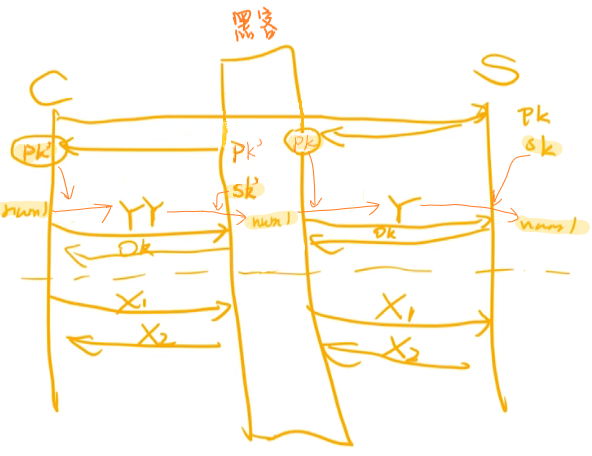 黑客
C
S
pk
sk
pk'
pk'
pk
sk'
num1
YY
num1
Y
num1
ok
ok
X1
X1
X2
X2